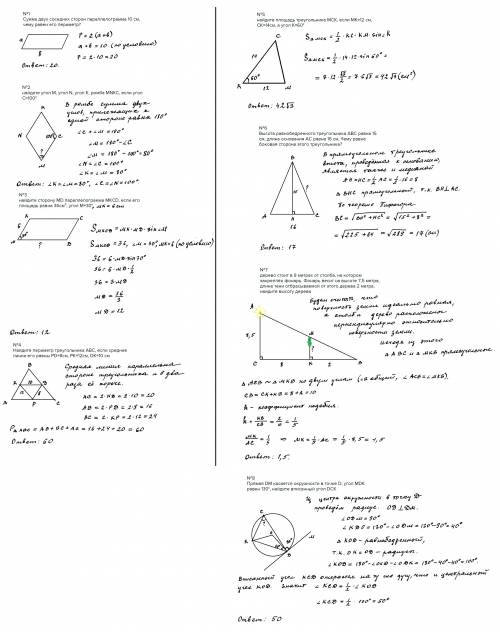 №1
Сумма двух соседних сторон параллелограмма 10 см,
чему равен его периметр?
a
b
P = 2(a+b)
a+b = 10 (по условию)
P = 2·10 = 20
Ответ: 20.
№2
найдите угол M, угол N, угол K, ромба MNKC, если угол
C=100°
В ромбе сумма двух
углов, прилежащих к
одной стороне равна 180°
∠C + ∠M = 180°
∠M = 180° - ∠C
∠M = 180° - 100° = 80°
∠N = ∠C = 100°
∠K = ∠M = 80°
Ответ: ∠K = ∠M = 80°, ∠C = ∠N = 100°.
№3
найдите сторону MD параллелограмма MKCD, если его
площадь равна 36см², угол M=30°, MK = 6см
S MKCD = MK·MD·sin M
S MKCD = 36, ∠M = 30°, MK = 6 (по условию)
36 = 6·MD·sin 30°
36 = 6·MD·1/2
36 = 3·MD
MD = 36/3
MD = 12
Ответ: 12
№4
Найдите периметр треугольника ABC, если средние
линии его равны PD=8см, PK=12см, DK=10 см
Средняя линия параллельна
стороне треугольника и в два
раза её короче.
AC = 2·KD = 2·10 = 20
AB = 2·PD = 2·8 = 16
BC = 2·KP = 2·12 = 24
P ABC = AB + BC + AC = 16 + 24 + 20 = 60
Ответ: 60.
№5
найдите площадь треугольника MCK, если MK=12 см,
CK=14см, а угол K=60°
14
60°
12
K
M
= 7·12·√3/2 = 7·6√3 = 42√3 (см²)
Ответ: 42√3
№6
Высота равнобедренного треугольника ABC равна 15
см, длина основания AC равна 16 см. Чему равен
боковая сторона этого треугольника?
В прямоугольном треугольнике
высота, проведённая к основанию,
является также и медианой
AH = HC = 1/2 AC = 1/2·16 = 8
△BHC прямоугольный, т.к. BH⊥AC.
По теореме Пифагора
BC = √BH² + HC² = √15² + 8² =
= √225 + 64 = √289 = 17 (см)
Ответ: 17
№7
дерево стоит в 8 метрах от столба, на котором
закреплён фонарь. Фонарь висит на высоте 7,5 метра,
длина тени отбрасываемой от этого дерева 2 метра,
найдите высоту дерева
Будем считать, что
поверхность земли идеально ровная,
а столб и дерево расположены
перпендикулярно относительно
поверхности земли.
Исходя из этого
△ABC и △MKB прямоугольные.
△ACB ~ △MKB по двум углам (∠B общий, ∠ACB = ∠MKB).
CB = CK + KB = 8 + 2 = 10
k - коэффициент подобия.
k = KB/CB = 2/10 = 1/5
MK/AC = 1/5 ⇒ MK = 1/5·AC = 1/5·7,5 = 1,5
Ответ: 1,5.
№8
Прямая DM касается окружности в точке D, угол MDK
равен 130°, найдите вписанный угол DCK
Из центра окружности в точку D
проведём радиус. OD⊥DM.
∠ODM = 90°
∠KDO = 130° - ∠ODM = 130° - 90° = 40°
△KOD - равнобедренный,
т.к. OK = OD - радиусы.
∠KOD = 180° - ∠OKD - ∠ODK = 180° - 40° - 40° = 100°.
Вписанный угол KCD опирается на ту же дугу, что и центральный
угол KOD. Значит ∠KCD = 1/2·∠KOD
∠KCD = 1/2·100° = 50°
Ответ: 50